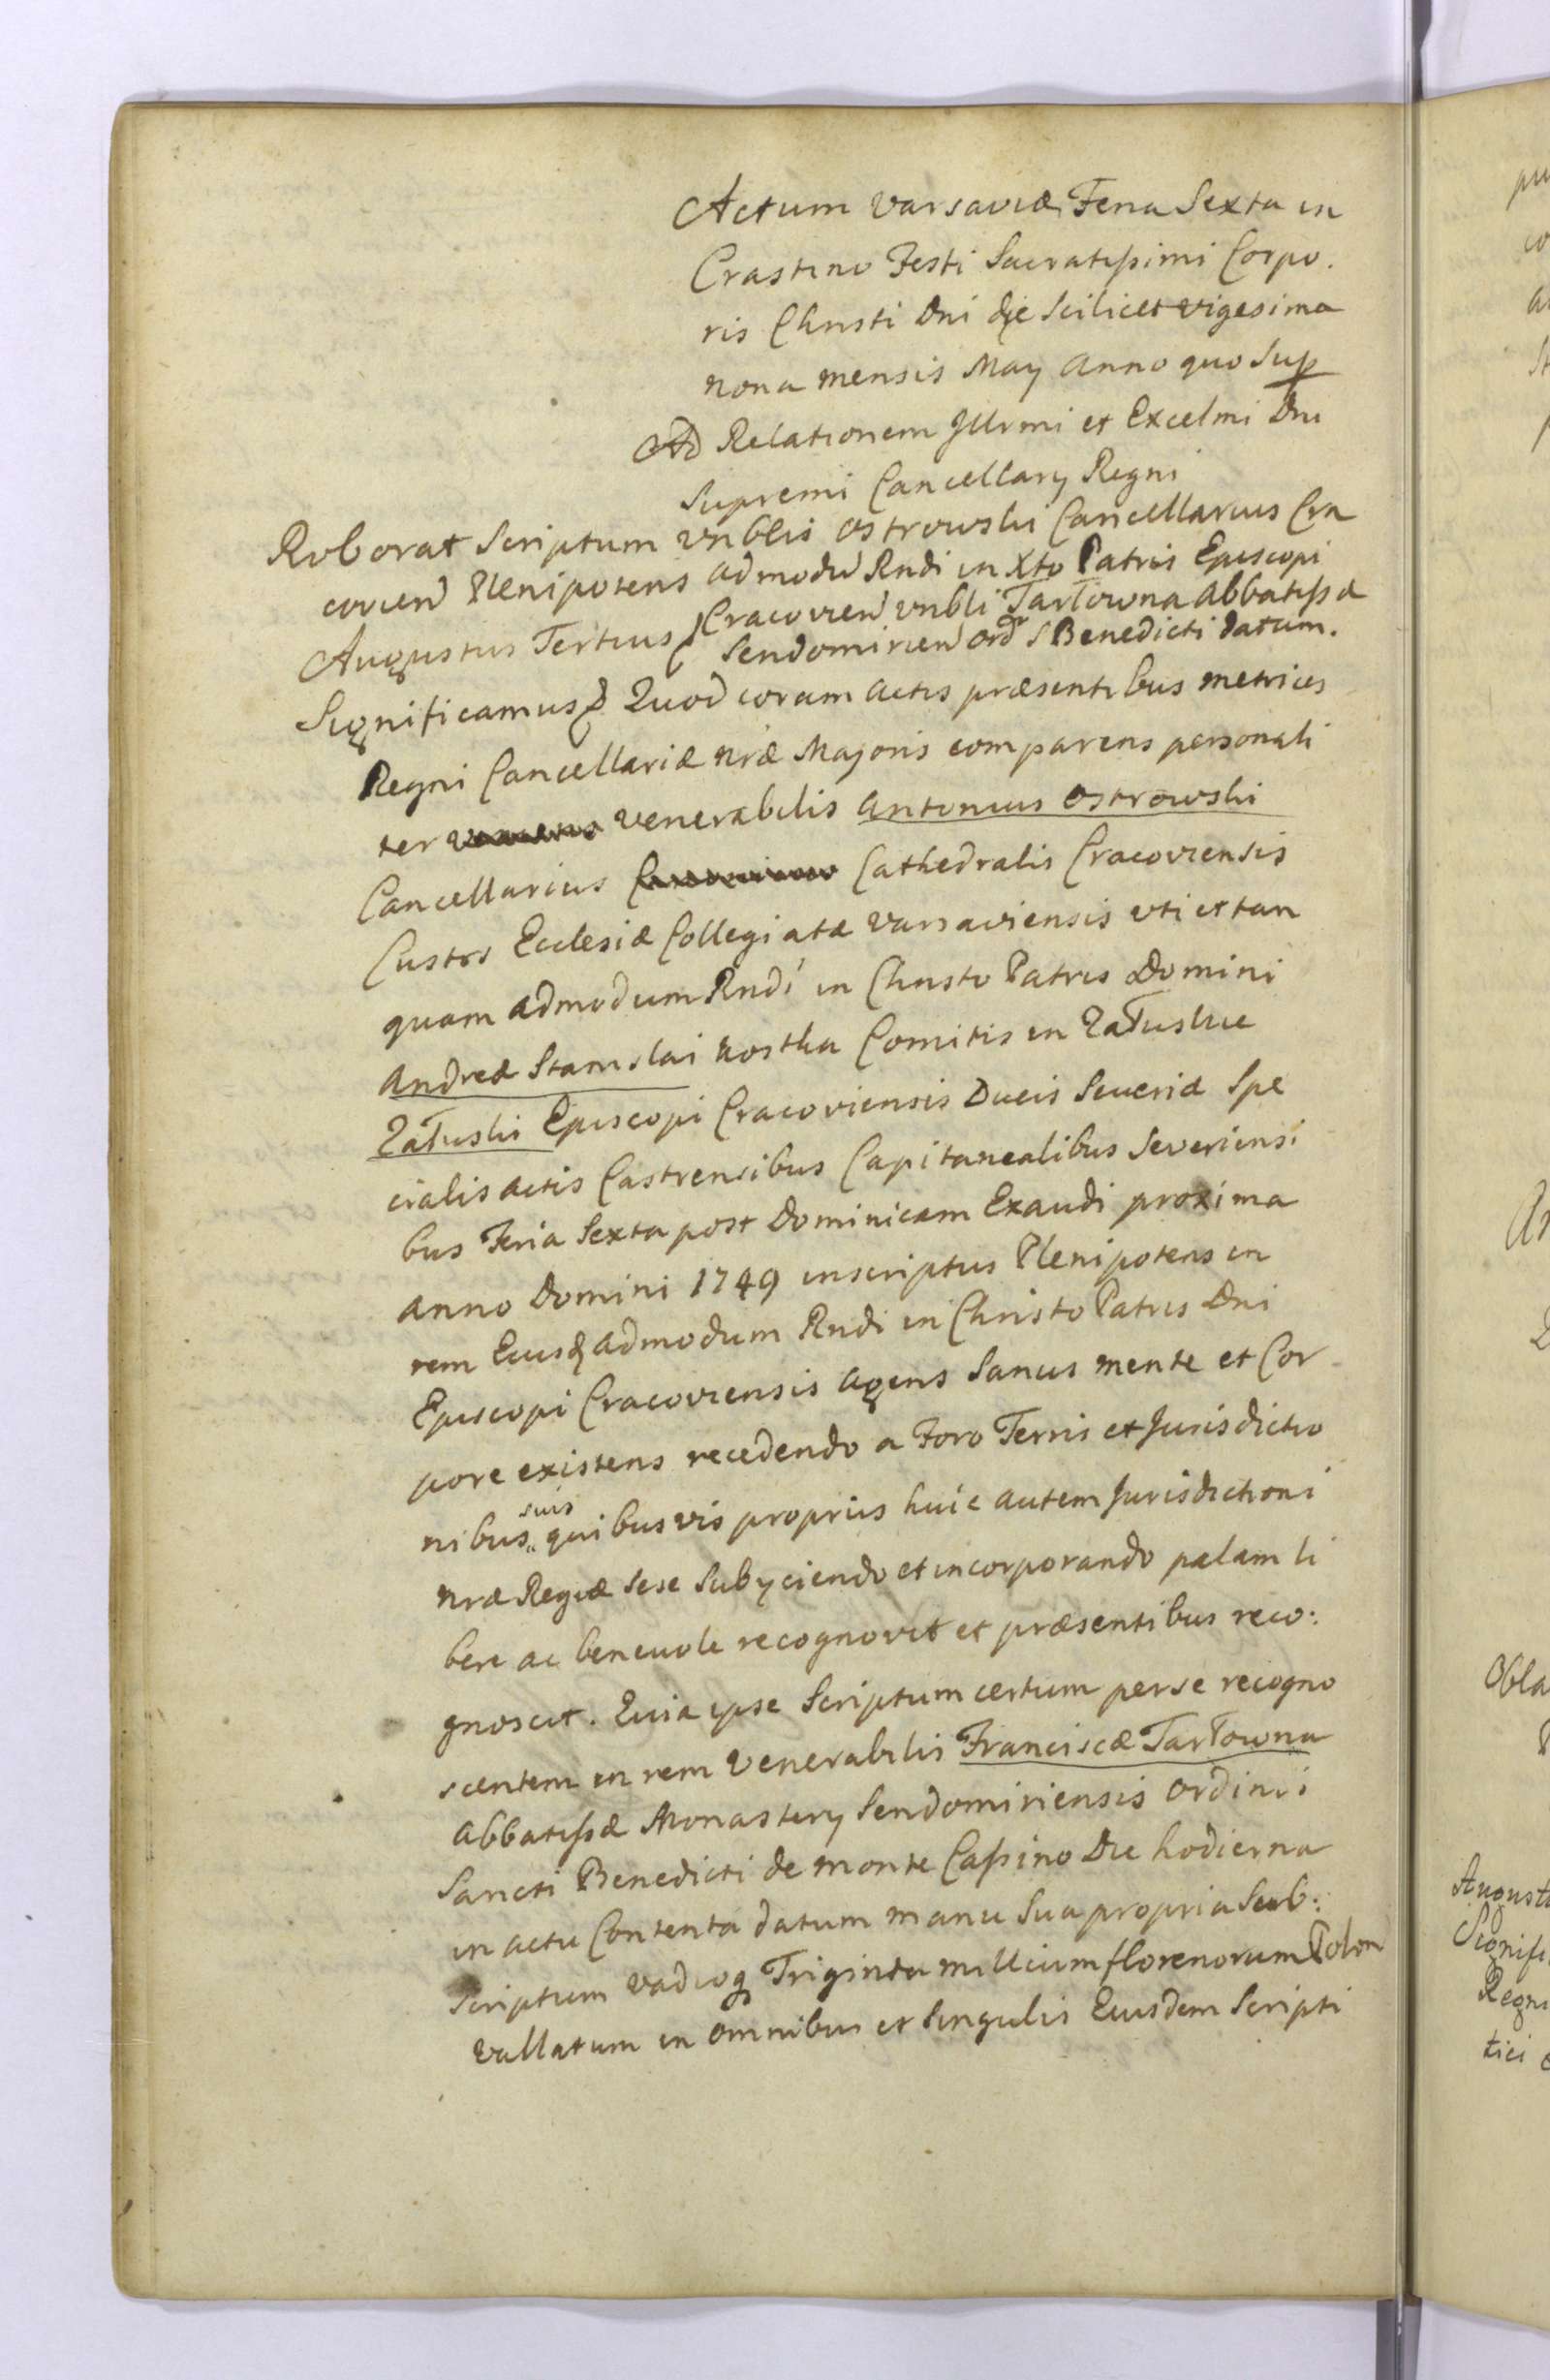 Actum Varsaviæ Feria Sexta in
Crastino Festi Sacratissimi Corpo.
ris Christi Dni die Scilicet vigesima
nona mensis May Anno quo Sup
Ad Relationem Illrmi et Excelmi Dni
Supremi Cancellary Regni
Roborat Scriptum Vnblis Ostrowski Cancellarius Cra
covien Plenipotens admodu Rndi in Xto Patris Episcopi
Cracovien vnbli Tarłowna Abbatissæ
Augustus Tertius
Sendomirien Ord S Benedicti datum.
Significamus Quod coram actis præsentibus metrices
Regni Cancellariæ nræ Majoris comparens personali
ter venerabilis Antonius Ostrowski
Cancellarius Cathedralis Cracoviensis
Custos Ecclesiæ Collegiatæ Varsaviensis uti et tan
quam admodum Rndi in Christo Patris Domini
Andreæ Stanislai Kostka Comitis in Załuskie
Załuski Episcopi Cracoviensis Ducis Severiæ Spe
cialis actis Castrensibus Capitanealibus Severiensi
bus Feria Sexta post Dominicam Exaudi proxima
anno Domini 1749 inscriptus Plenipotens in
rem Eiusd admodum Rndi in Christo Patris Dni
Episcopi Cracoviensis agens Sanus mente et Cor
pore existens recedendo a Foro Terris et Jurisdictio
nibus suis quibusvis proprius huic autem Jurisdictioni
nræ Regiæ sese Subyciendo et incorporando palam li
bere ac benevole recognovit et præsentibus reco:
gnoscit. Quia ipse Scriptum certum per se recogno
scentem in rem Venerabilis Franciscæ Tarłowna
Abbatissæ Monastery Sendomiriensis Ordinis
Sancti Benedicti de monte Cassino Die hodierna
in actu Contenta datum manu Sua propria Sub:
scriptum vadioq Triginta millium florenorum Polon
vallatum in omnibus et Singulis Eiusdem Scripti